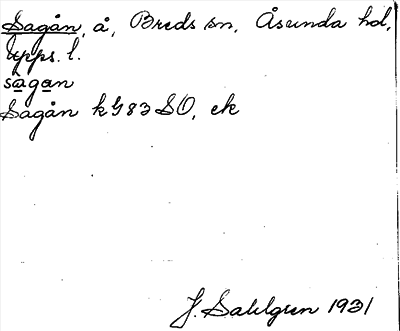 Sagån, å, Breds sn, Åsunda hd,
Upps. l.
sågan
Sagån kG83SO, ek
J. Sahlgren 1931